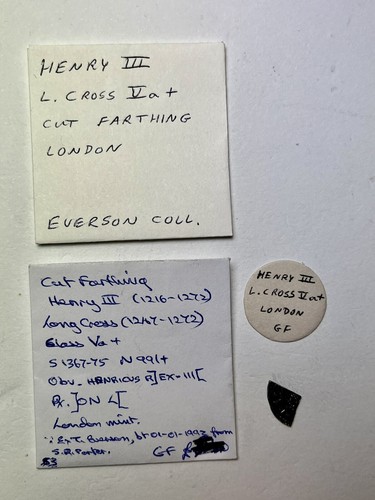 HENRY III
L. CROSS Va+
CUT FARTHING
LONDON
EVERSON COLL.
Cut Farthing
Henry III (1216-1272)
Long Cross (1247-1272)
Class Va+
S1367-75 N991+
Obv. HENRICUS R]EX·III[
Rx. ]ON L[
London mint.
Ex T. Everson, bt 01-01-1993 from
S.R. Porter. GF
HENRY III
L. CROSS Va+
LONDON
GF